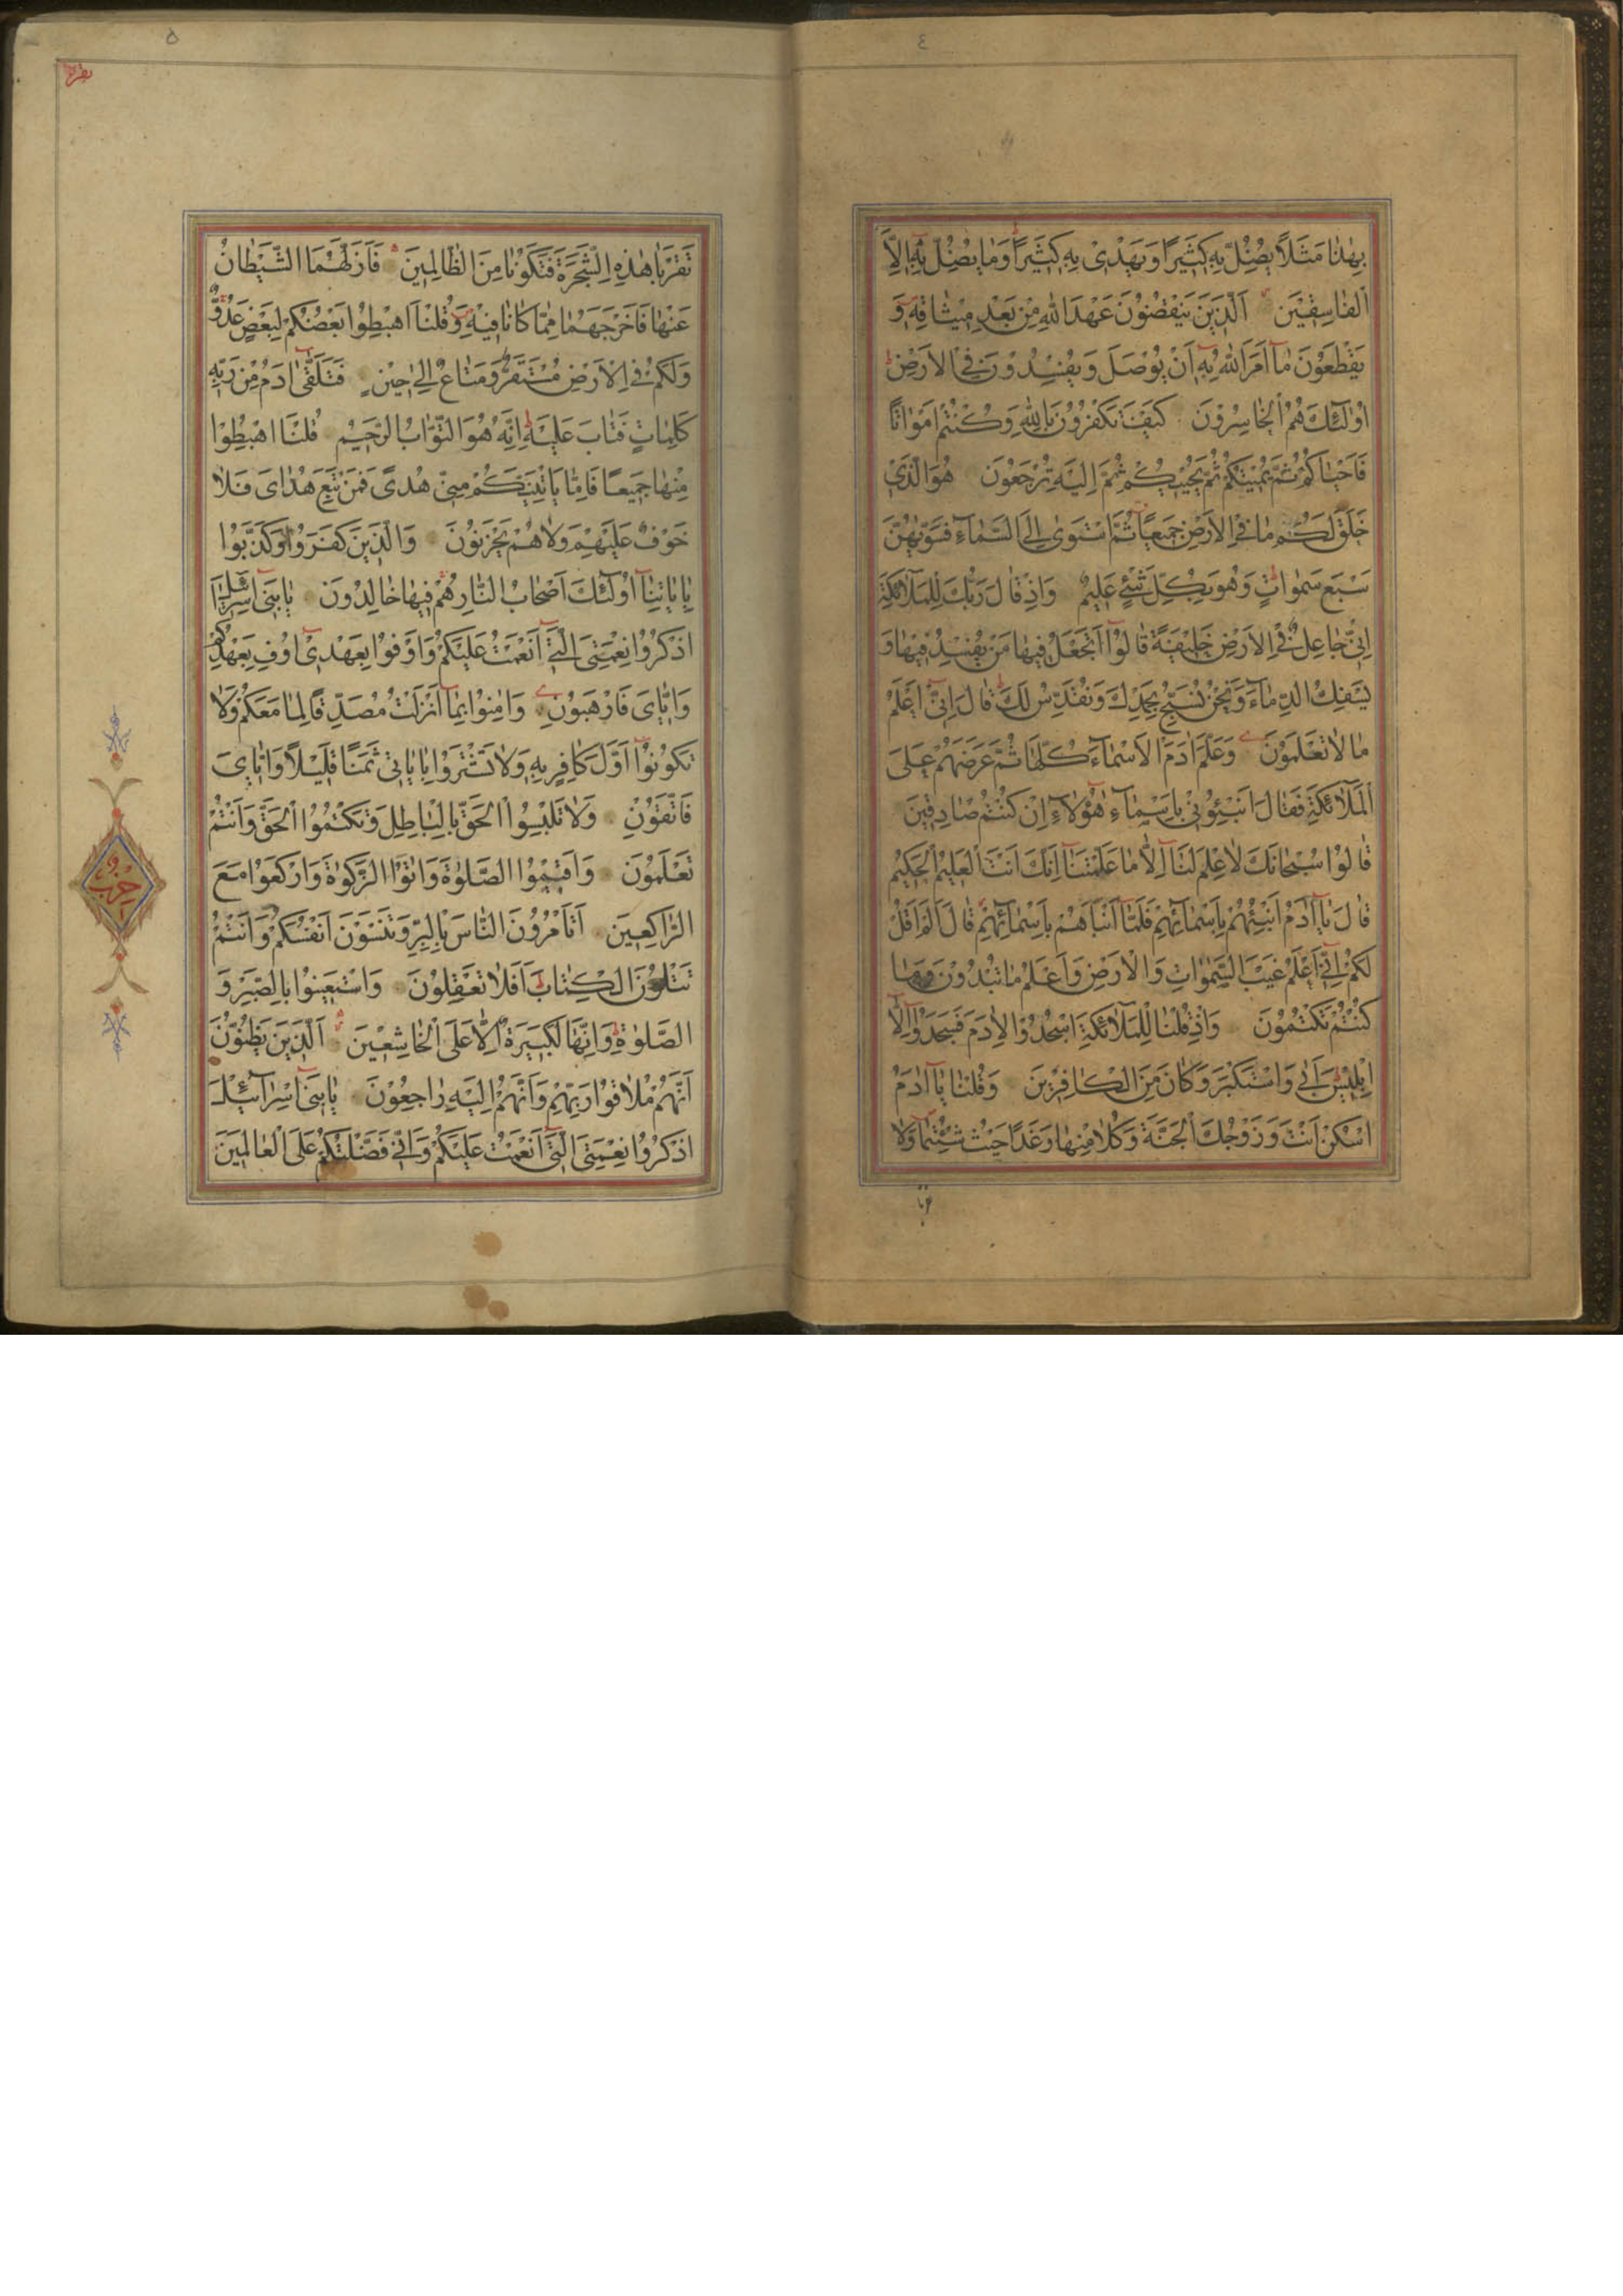 ٤
بِهٰذَا مَثَلًا يُضِلُّ بِهِ كَثِيرًا وَيَهْدِي بِهِ كَثِيرًا وَمَا يُضِلُّ بِهِ إِلَّا
الْفَاسِقِينَ الَّذِينَ يَنْقُضُونَ عَهْدَ اللهِ مِنْ بَعْدِ مِيثَاقِهِ وَ
يَقْطَعُونَ مَا أَمَرَ اللهُ بِهِ أَنْ يُوصَلَ وَيُفْسِدُونَ فِي الْأَرْضِ
أُولٰئِكَ هُمُ الْخَاسِرُونَ كَيْفَ تَكْفُرُونَ بِاللهِ وَكُنْتُمْ أَمْوَاتًا
فَأَحْيَاكُمْ ثُمَّ يُمِيتُكُمْ ثُمَّ يُحْيِيكُمْ ثُمَّ إِلَيْهِ تُرْجَعُونَ هُوَ الَّذِي
خَلَقَ لَكُمْ مَا فِي الْأَرْضِ جَمِيعًا ثُمَّ اسْتَوٰى إِلَى السَّمَاءِ فَسَوّٰيهُنَّ
سَبْعَ سَمٰوَاتٍ وَهُوَ بِكُلِّ شَيْءٍ عَلِيمٌ وَإِذْ قَالَ رَبُّكَ لِلْمَلَائِكَةِ
إِنِّي جَاعِلٌ فِي الْأَرْضِ خَلِيفَةً قَالُوا أَتَجْعَلُ فِيهَا مَنْ يُفْسِدُ فِيهَا وَ
يَسْفِكُ الدِّمَاءَ وَنَحْنُ نُسَبِّحُ بِحَمْدِكَ وَنُقَدِّسُ لَكَ قَالَ إِنِّي أَعْلَمُ
مَا لَا تَعْلَمُونَ وَعَلَّمَ اٰدَمَ الْأَسْمَاءَ كُلَّهَا ثُمَّ عَرَضَهُمْ عَلَى
الْمَلَائِكَةِ فَقَالَ أَنْبِئُونِي بِأَسْمَاءِ هٰؤُلَاءِ إِنْ كُنْتُمْ صَادِقِينَ
قَالُوا سُبْحَانَكَ لَا عِلْمَ لَنَا إِلَّا مَا عَلَّمْتَنَا إِنَّكَ أَنْتَ الْعَلِيمُ الْحَكِيمُ
قَالَ يَا اٰدَمُ أَنْبِئْهُمْ بِأَسْمَائِهِمْ فَلَمَّا أَنْبَأَهُمْ بِأَسْمَائِهِمْ قَالَ أَلَمْ أَقُلْ
لَكُمْ إِنِّي أَعْلَمُ غَيْبَ السَّمٰوَاتِ وَالْأَرْضِ وَأَعْلَمُ مَا تُبْدُونَ وَمَا
كُنْتُمْ تَكْتُمُونَ وَإِذْ قُلْنَا لِلْمَلَائِكَةِ اسْجُدُوا لِاٰدَمَ فَسَجَدُوا إِلَّا
إِبْلِيسَ أَبٰى وَاسْتَكْبَرَ وَكَانَ مِنَ الْكَافِرِينَ وَقُلْنَا يَا اٰدَمُ
اسْكُنْ أَنْتَ وَزَوْجُكَ الْجَنَّةَ وَكُلَا مِنْهَا رَغَدًا حَيْثُ شِئْتُمَا وَلَا
تقربا
٥
بقره
تَقْرَبَا هٰذِهِ الشَّجَرَةَ فَتَكُونَا مِنَ الظَّالِمِينَ فَأَزَلَّهُمَا الشَّيْطَانُ
عَنْهَا فَأَخْرَجَهُمَا مِمَّا كَانَا فِيهِ وَقُلْنَا اهْبِطُوا بَعْضُكُمْ لِبَعْضٍ عَدُوٌّ
وَلَكُمْ فِي الْأَرْضِ مُسْتَقَرٌّ وَمَتَاعٌ إِلٰى حِينٍ فَتَلَقّٰى اٰدَمُ مِنْ رَبِّهِ
كَلِمَاتٍ فَتَابَ عَلَيْهِ إِنَّهُ هُوَ التَّوَّابُ الرَّحِيمُ قُلْنَا اهْبِطُوا
مِنْهَا جَمِيعًا فَإِمَّا يَأْتِيَنَّكُمْ مِنِّي هُدًى فَمَنْ تَبِعَ هُدَايَ فَلَا
خَوْفٌ عَلَيْهِمْ وَلَا هُمْ يَحْزَنُونَ وَالَّذِينَ كَفَرُوا وَكَذَّبُوا
بِاٰيَاتِنَا أُولٰئِكَ أَصْحَابُ النَّارِ هُمْ فِيهَا خَالِدُونَ يَا بَنِي إِسْرَائِيلَ
اذْكُرُوا نِعْمَتِيَ الَّتِي أَنْعَمْتُ عَلَيْكُمْ وَأَوْفُوا بِعَهْدِي أُوفِ بِعَهْدِكُمْ
وَإِيَّايَ فَارْهَبُونِ وَاٰمِنُوا بِمَا أَنْزَلْتُ مُصَدِّقًا لِمَا مَعَكُمْ وَلَا
تَكُونُوا أَوَّلَ كَافِرٍ بِهِ وَلَا تَشْتَرُوا بِاٰيَاتِي ثَمَنًا قَلِيلًا وَإِيَّايَ
فَاتَّقُونِ وَلَا تَلْبِسُوا الْحَقَّ بِالْبَاطِلِ وَتَكْتُمُوا الْحَقَّ وَأَنْتُمْ
تَعْلَمُونَ وَأَقِيمُوا الصَّلٰوةَ وَاٰتُوا الزَّكٰوةَ وَارْكَعُوا مَعَ
الرَّاكِعِينَ أَتَأْمُرُونَ النَّاسَ بِالْبِرِّ وَتَنْسَوْنَ أَنْفُسَكُمْ وَأَنْتُمْ
تَتْلُونَ الْكِتَابَ أَفَلَا تَعْقِلُونَ وَاسْتَعِينُوا بِالصَّبْرِ وَ
الصَّلٰوةِ وَإِنَّهَا لَكَبِيرَةٌ إِلَّا عَلَى الْخَاشِعِينَ الَّذِينَ يَظُنُّونَ
أَنَّهُمْ مُلَاقُوا رَبِّهِمْ وَأَنَّهُمْ إِلَيْهِ رَاجِعُونَ يَا بَنِي إِسْرَائِيلَ
اذْكُرُوا نِعْمَتِيَ الَّتِي أَنْعَمْتُ عَلَيْكُمْ وَأَنِّي فَضَّلْتُكُمْ عَلَى الْعَالَمِينَ
حزب